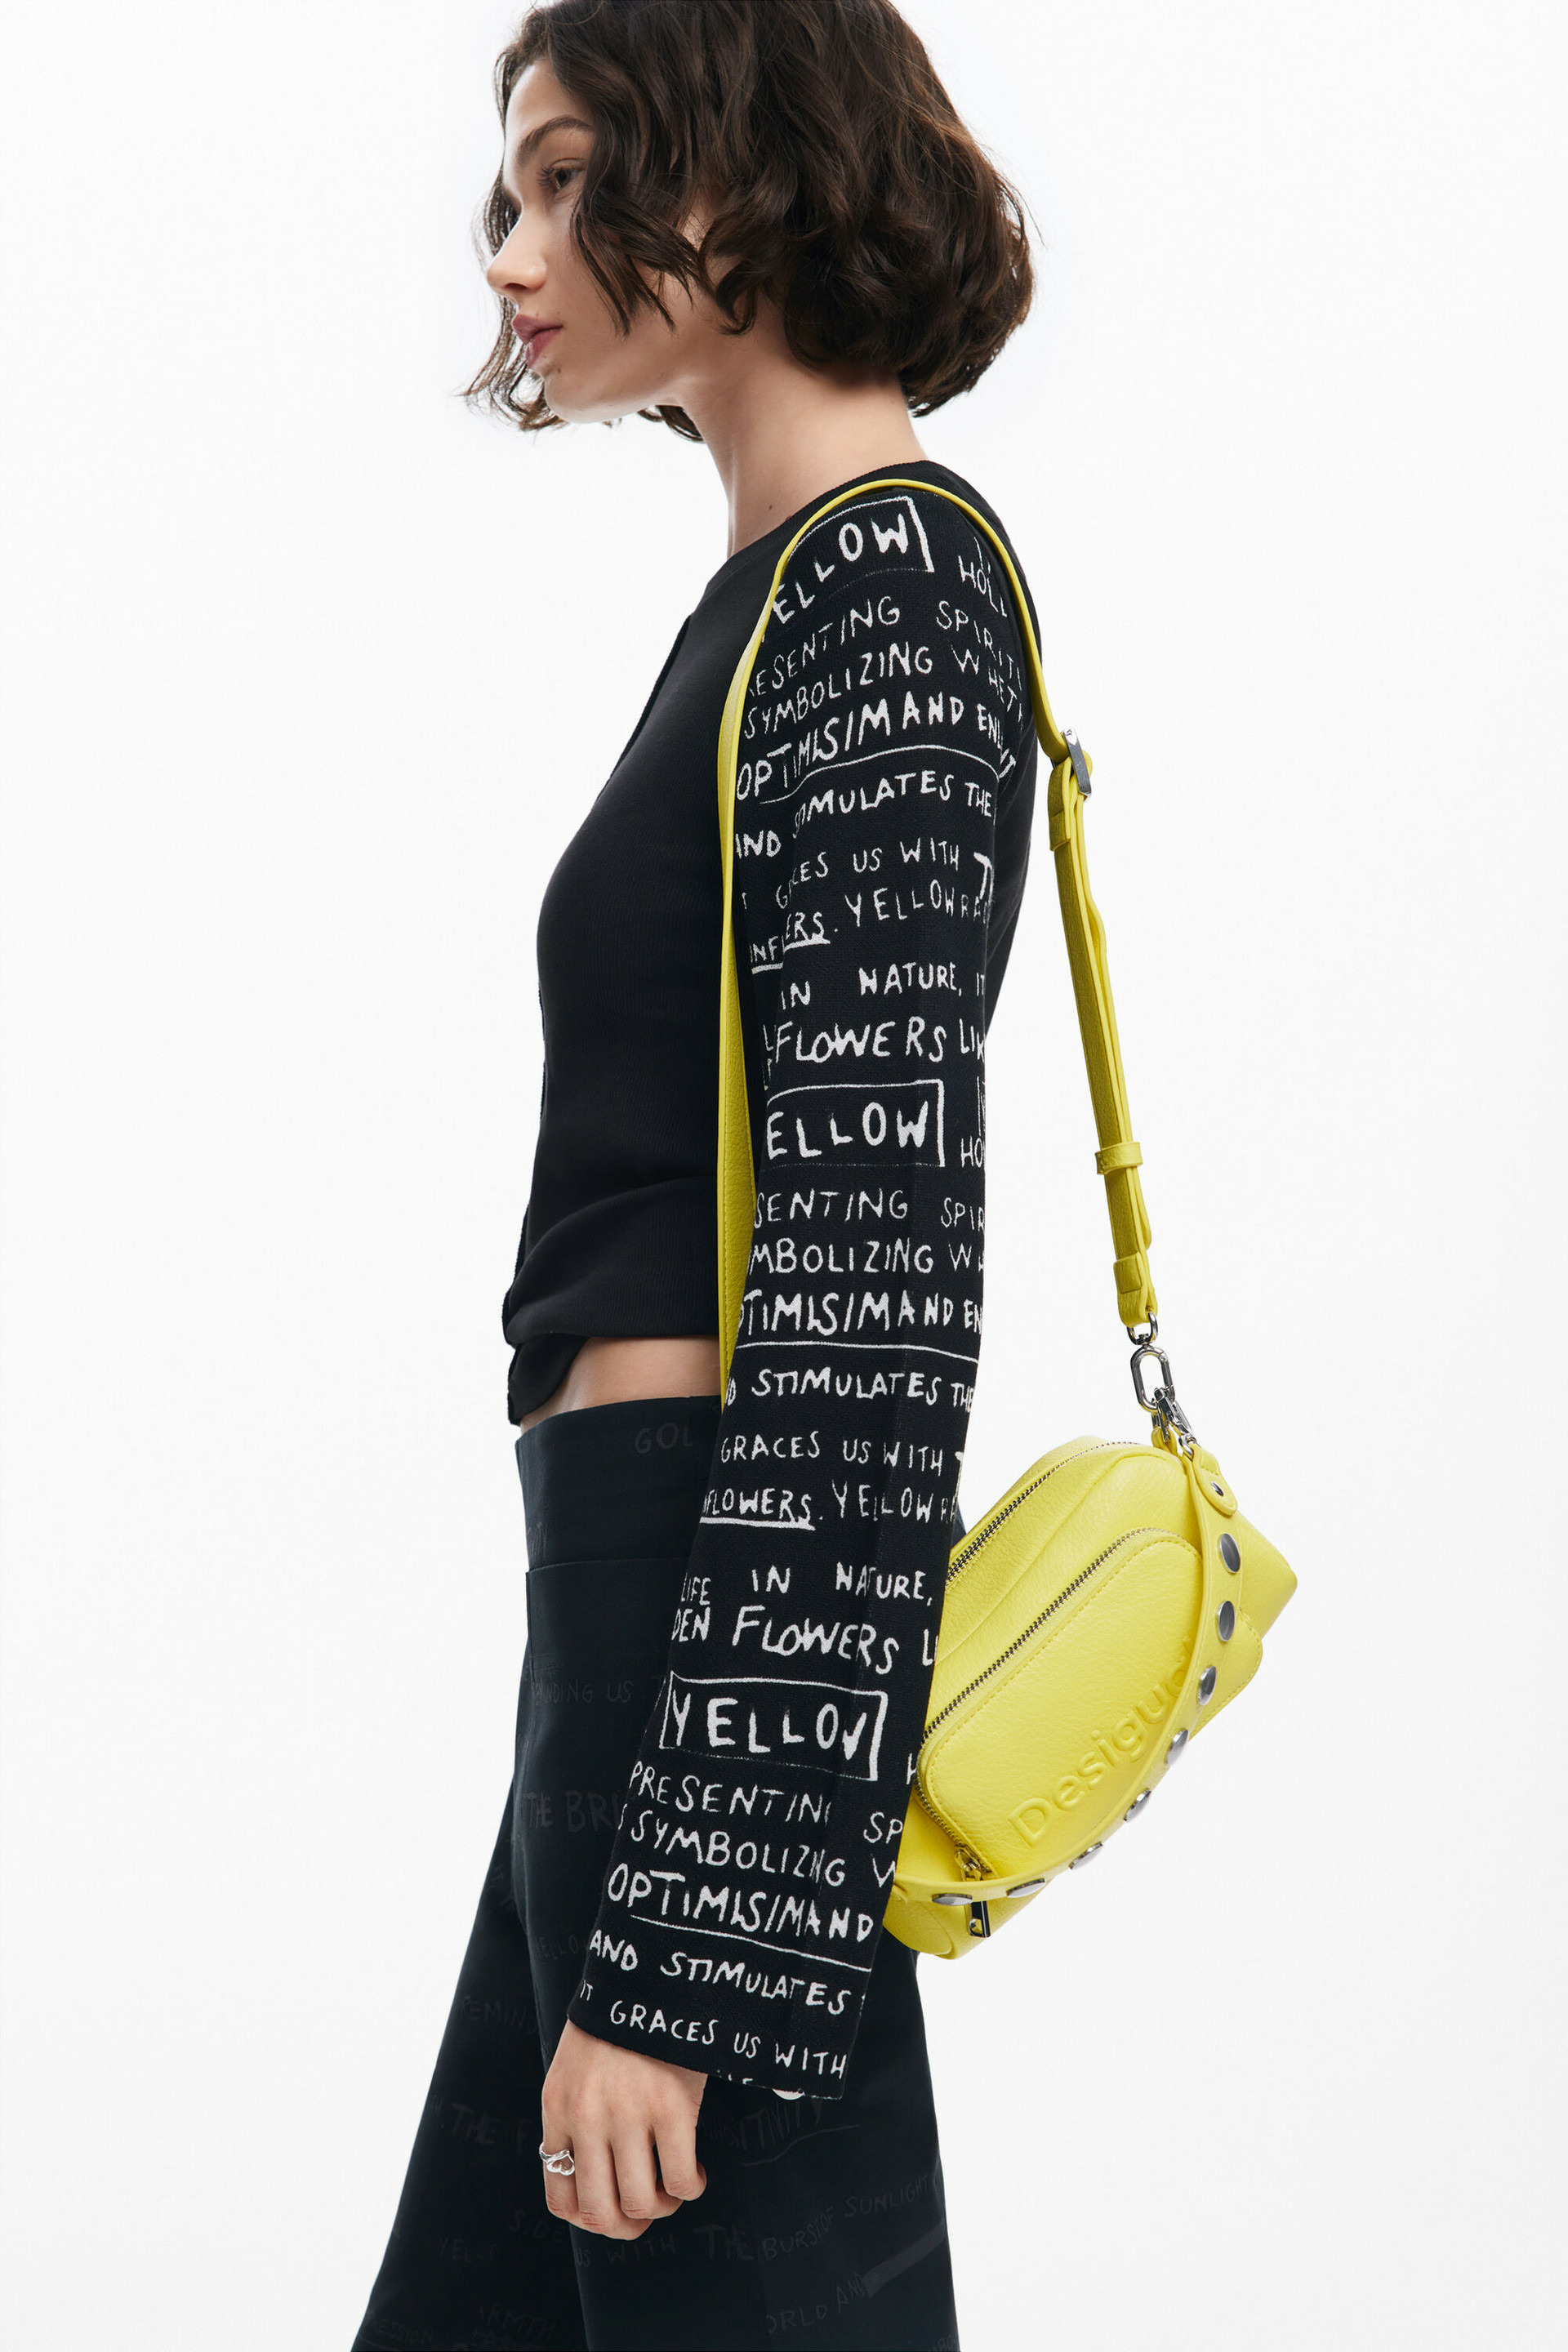 ELLOW
HOLL
ESENTING SPIRIT
SYMBOLIZING WHET
OPTIMISIM AND EN
AND STIMULATES THE
GRACES US WITH T
INF ERS. YELLOW RE
IN NATURE, IT
FLOWERS LIK
ELLOW
HO
SENTING SPIR
MBOLIZING W
OTIMISIM AND EN
D STIMULATES THE
GRACES US WITH T
FLOWERS. YELLOW R
LIFE IN NATURE,
DEN FLOWERS L
YELLOW
PRESENTING SP
SYMBOLIZING W
OPTIMISIM AND
AND STIMULATES
IT GRACES US WITH
Desigual
GOL
INDING US
THE BRI
ELLO
REMINS
THE F
US WITH THE
BURST OF SUNLIGHT
ORLD AND
RMTH